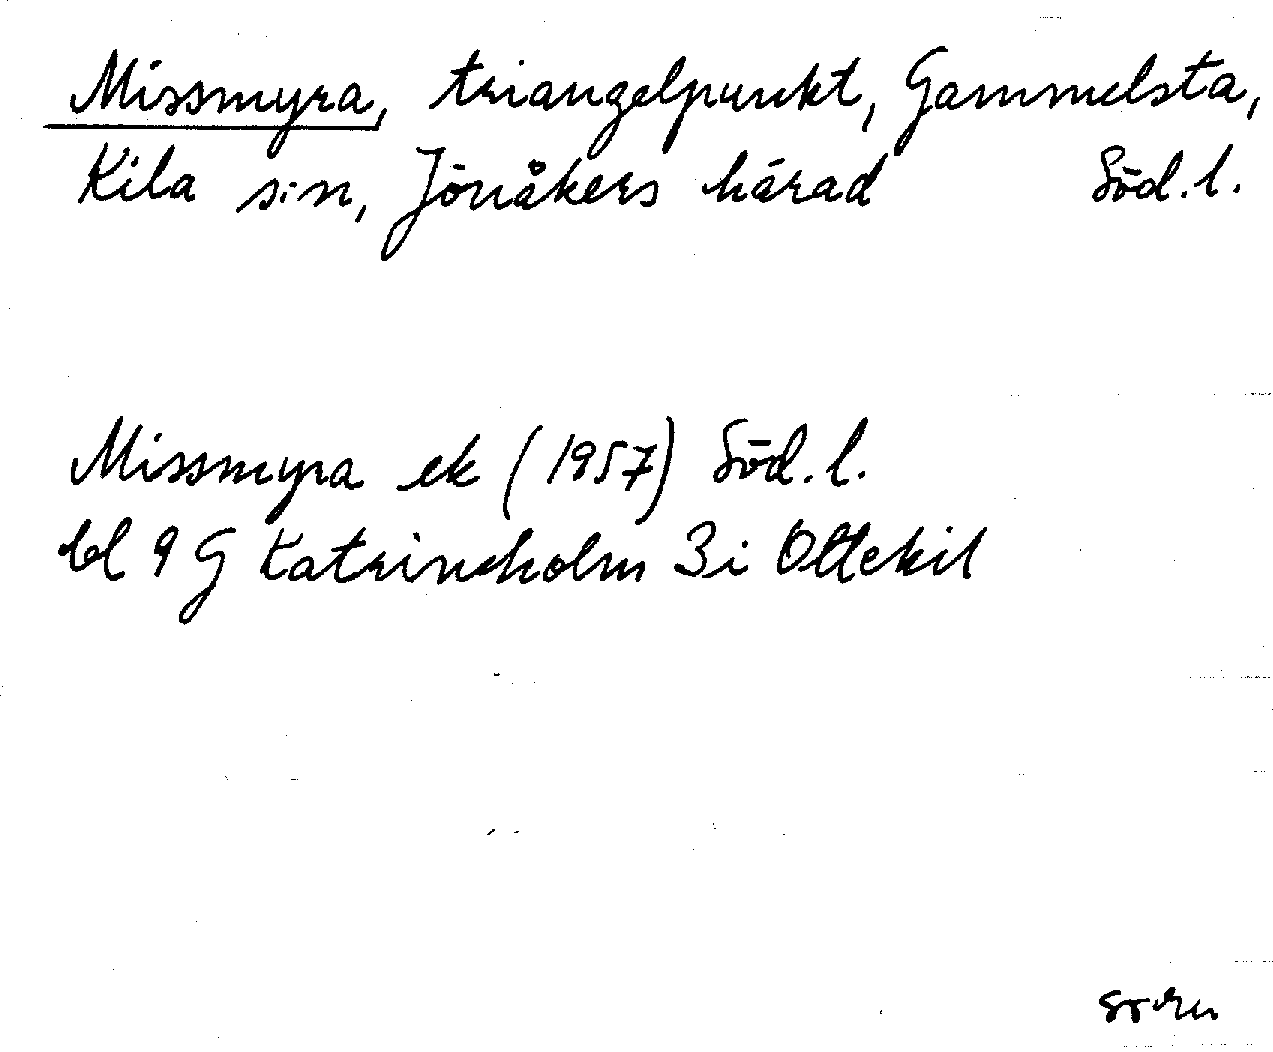 Missmyra, triangelpunkt, Gammelsta,
Kila sn, Jönåkers härad Söd.l.
Missmyra ek (1957) Söd.l.
bl 9 G Katrineholm 3i Ottekil